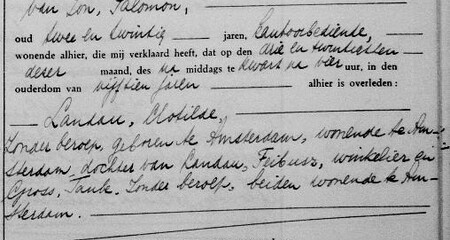 van Son, Salomon,
oud twee en twintig jaren, kantoorbediende,
wonende alhier, die mij verklaard heeft, dat op den drie en twintigsten
dezer maand, des na middags te kwart na vier uur, in den
ouderdom van vijftien jaren alhier is overleden:
Landau, Clotilde,
zonder beroep, geboren te Amsterdam, wonende te Am-
sterdam, dochter van Landau, Feibusz, winkelier en
Gross, Taube, zonder beroep, beiden wonende te Am-
sterdam.